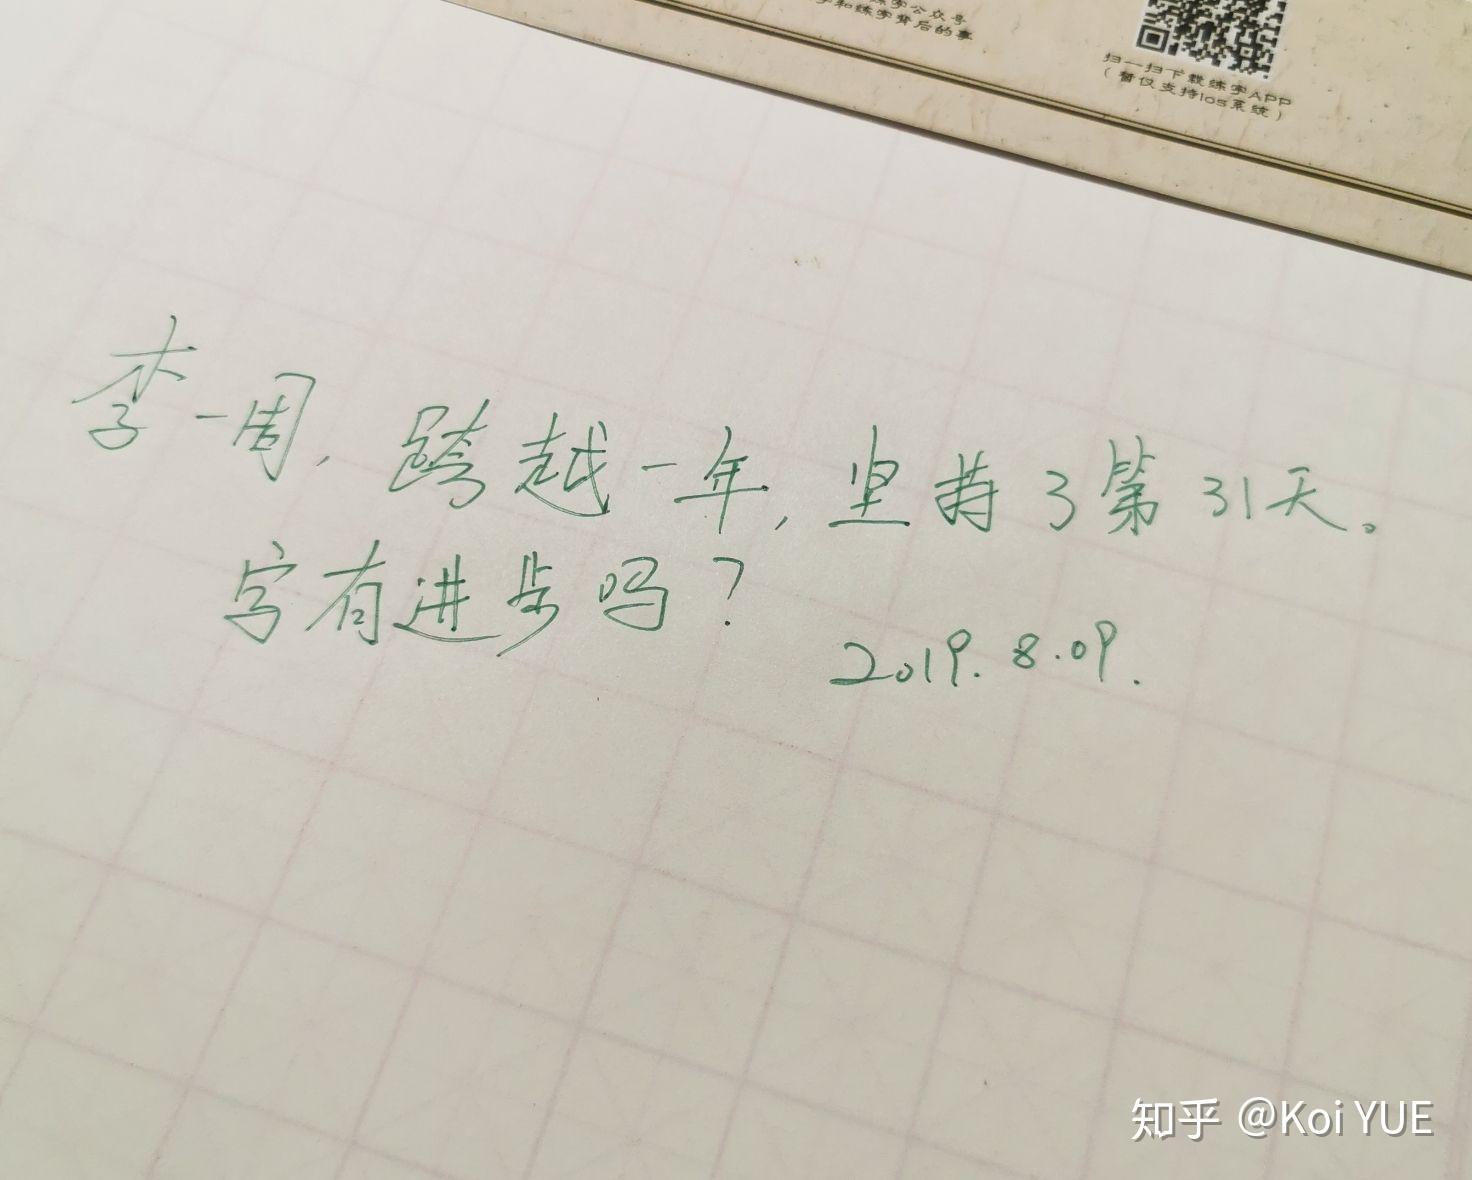 练字公众号
字和练字背后的事
扫一扫下载练字APP
(暂仅支持ios系统)
李一周，跨越一年，坚持了第31天。
字有进步吗？
2019.8.09.
知乎 @Koi YUE